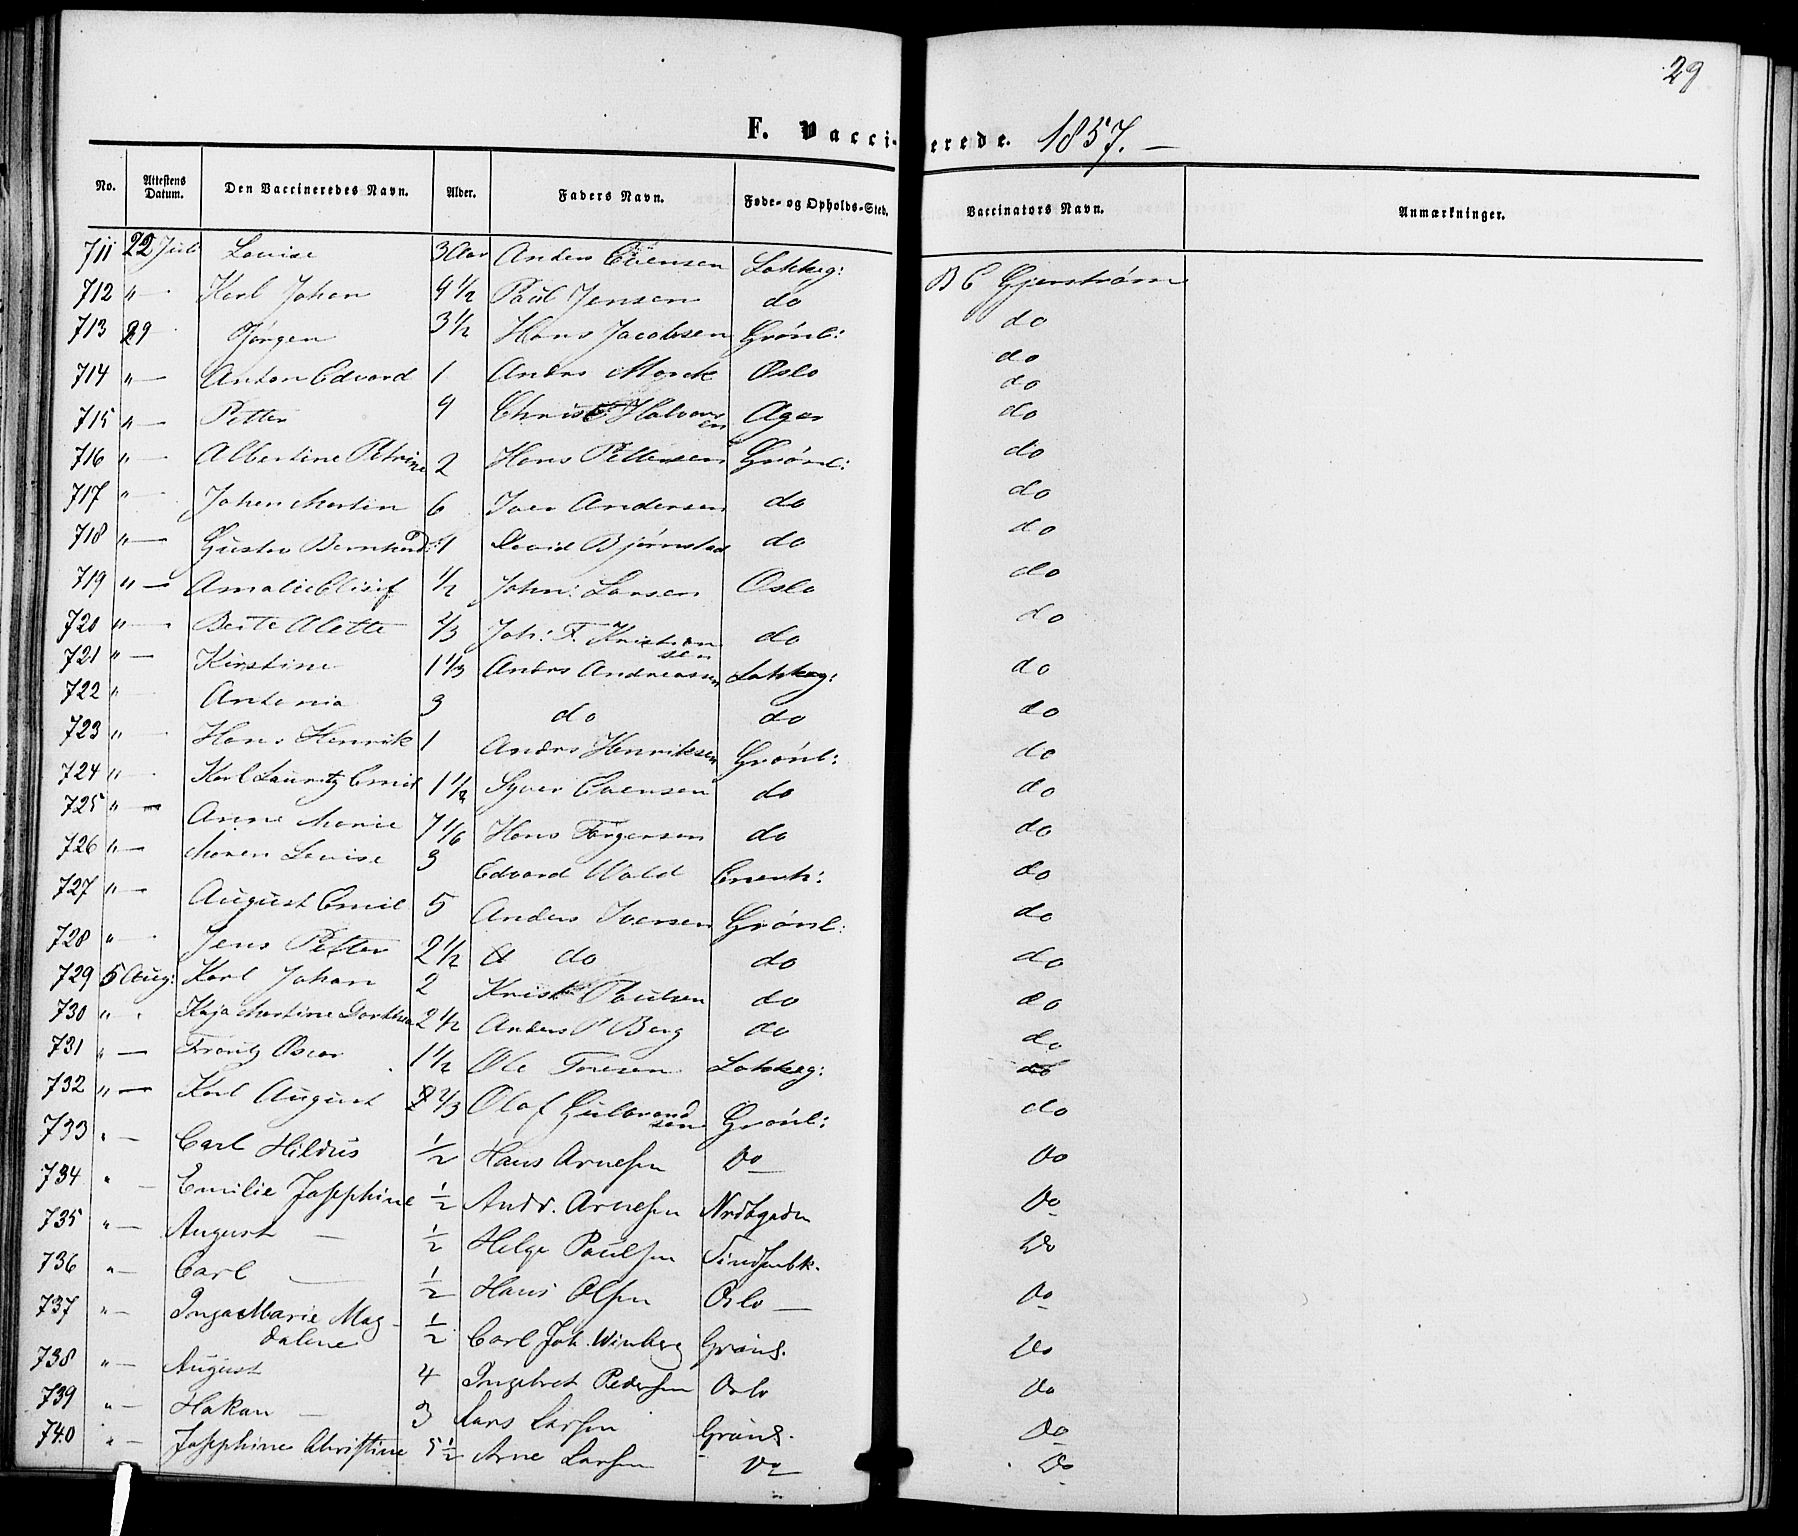 29
F. Vaccinerede. 1857. —
No. Attestens Datum. Den Vaccineredes Navn. Alder. Faders Navn. Føde- og Opholds-Sted. Vaccinators Navn. Anmærkninger.
711 22 Juli Lovise 3 Aar Anders Evensen Lakkeg: B C Gjerstrøm
712 " — Karl Johan 9 1/2 Paul Jensen do do
713 29 Jørgen 3 1/2 Hans Jacobsen Grønl: do
714 " — Anton Edvard 1 Andrs Oslo do
715 " — Petter 9 Christ Halvorsen Ager do
716 " — Albertine Petrine 2 Hans Pettersen Grønl: do
717 " Johan Martin 6 Iver Andersen do do
718 " — Gustav Bernhard David Bjørnstad do do
719 " — Amalie Elisif 1/2 John: Larsen Oslo do
720 " — Berte Alette 2/3 Joh: F. Kristiansen do do
721 " — Kirstine 1 1/3 Andrs Andreassen Lakkeg: do
722 " Antonia 3 do do do
723 " Hans Henrik 1 Andrs Henriksen Grønl: do
724 " Karl Lauritz Emil 1 1/2 Syver Evensen do do
725 " — Anne Marie 7 1/6 Hans Jørgensen do do
726 " — Maren Lovise 3 Edvard Wold Enerh: do
727 " — August Emil 5 Anders Iversen Grønl: do
728 " — Jens Petter 2 1/2 do do do
729 5 Aug: Karl Johan 2 Krist Paulsen do do
730 " Kaja Martine Dorthea 2 1/2 Anders P Berg do do
731 " — Frantz Oscar 1 1/2 Ole Toresen Lakkeg: do
732 " — Karl August 2/3 Olaf Gulbrandsen Grønl: do
733 " — Carl Hildus 1/2 Hans Arnesen Do Do
734 " — Emilie Josephine 1/2 Andr. Arnesen Nrdbgaden Do
735 " — August — 1/2 Helge Paulsen Do
736 " — Carl — 1/2 Hans Olsen Oslo — Do
737 " — Inga Marie Magdalene 1/2 Carl Joh. Winberg Grønl. Do
738 " — August 4 Ingebret Pedersen Oslo Do
739 " — Hakan — 3 Lars Larsen Grønl. Do
740 " — Josephine Christine 5 1/2 Arne Larsen Do Do